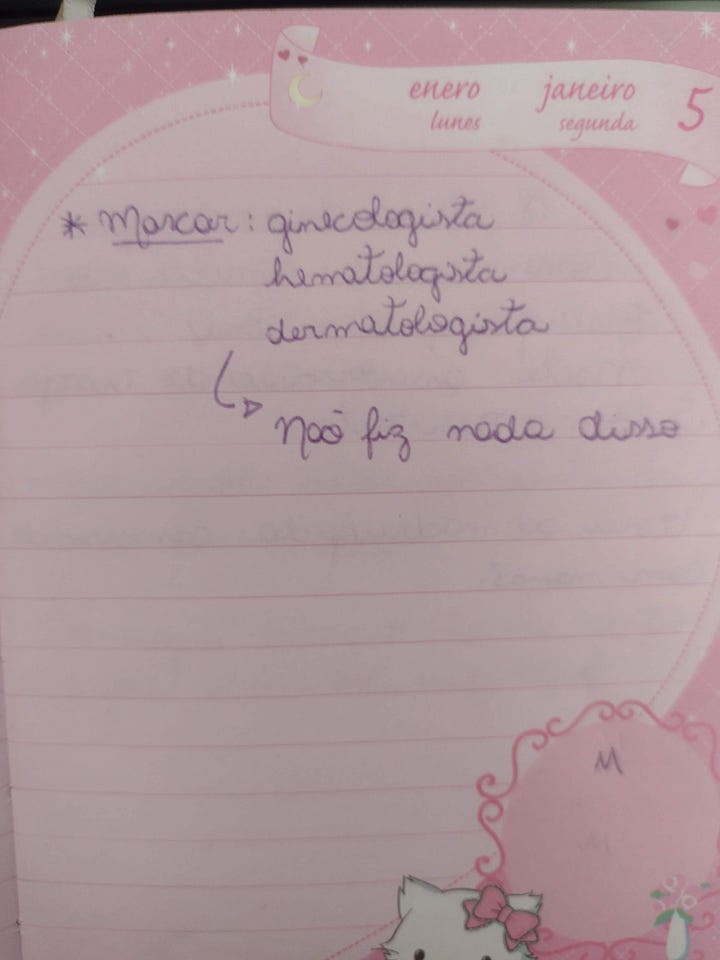 enero janeiro 5
lunes segunda
* Marcar: ginecologista
hematologista
dermatologista
Não fiz nada disso
M